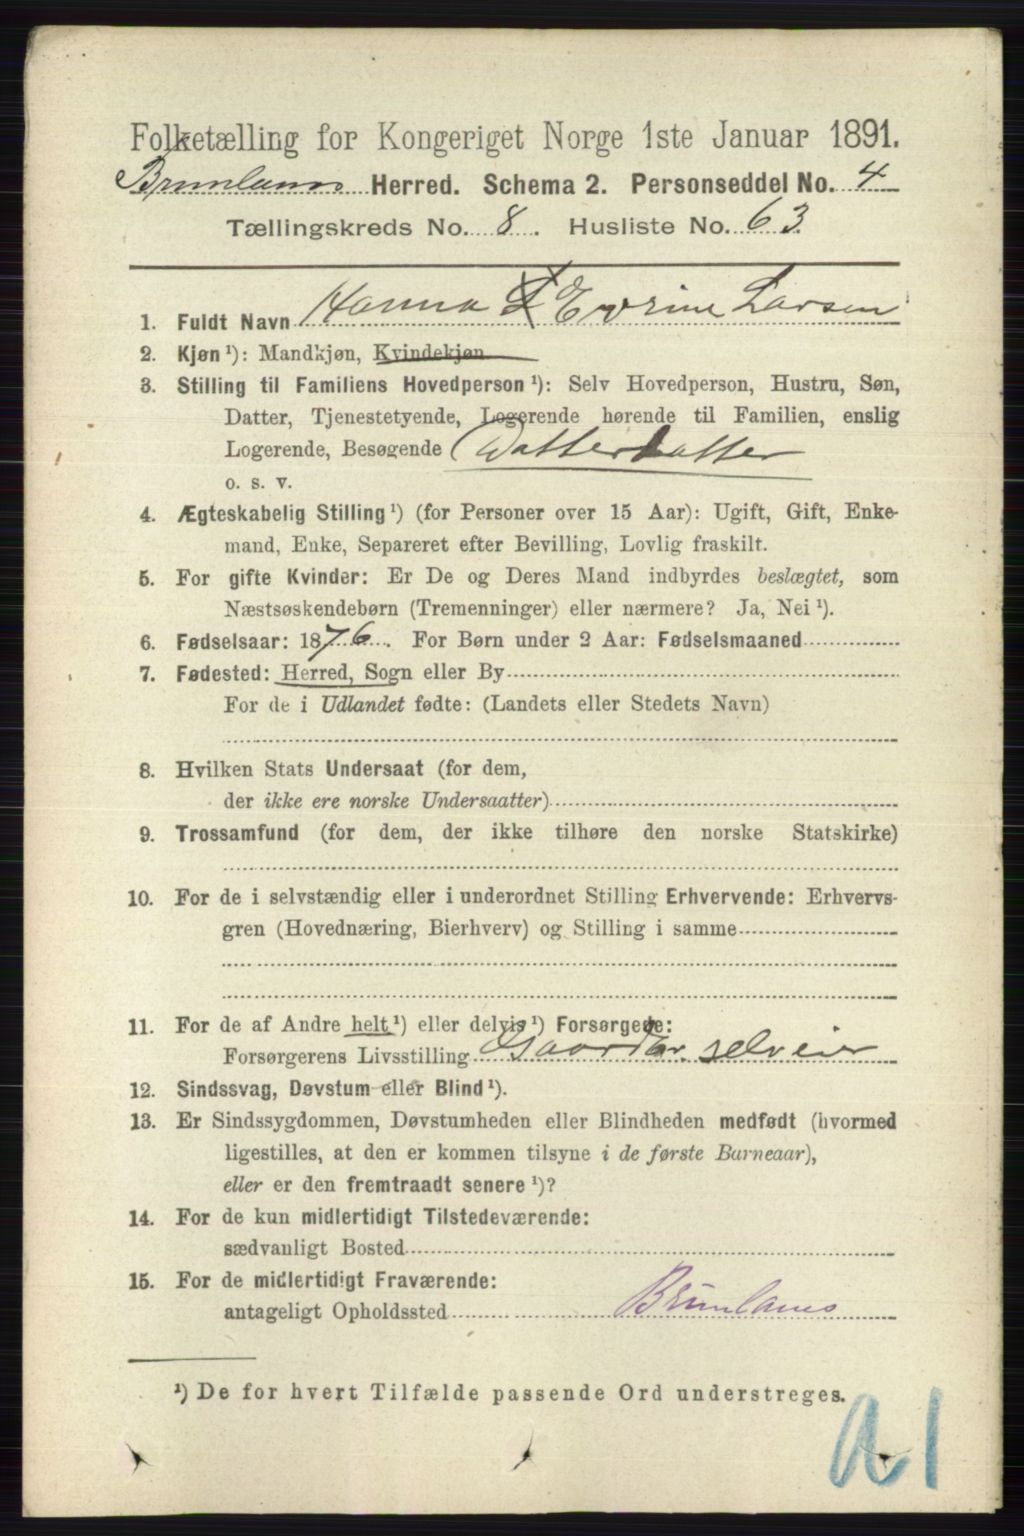 Folketælling for Kongeriget Norge 1ste Januar 1891.
Brunlanes Herred. Schema 2. Personseddel No. 4
Tællingskreds No. 8. Husliste No. 63.
1. Fuldt Navn Hanna Evrine Larsen
2. Kjøn ¹): Mandkjøn, Kvindekjøn
3. Stilling til Familiens Hovedperson ¹): Selv Hovedperson, Hustru, Søn,
Datter, Tjenestetyende, Logerende hørende til Familien, enslig
Logerende, Besøgende Datterdatter
o. s. v.
4. Ægteskabelig Stilling ¹) (for Personer over 15 Aar): Ugift, Gift, Enke-
mand, Enke, Separeret efter Bevilling, Lovlig fraskilt.
5. For gifte Kvinder: Er De og Deres Mand indbyrdes beslægtet, som
Næstsøskendebørn (Tremenninger) eller nærmere? Ja, Nei ¹).
6. Fødselsaar: 1876. For Børn under 2 Aar: Fødselsmaaned
7. Fødested: Herred, Sogn eller By
For de i Udlandet fødte: (Landets eller Stedets Navn)
8. Hvilken Stats Undersaat (for dem,
der ikke ere norske Undersaatter)
9. Trossamfund (for dem, der ikke tilhøre den norske Statskirke)
10. For de i selvstændig eller i underordnet Stilling Erhvervende: Erhvervs-
gren (Hovednæring, Bierhverv) og Stilling i samme
11. For de af Andre helt ¹) eller delvis ¹) Forsørgede:
Forsørgerens Livsstilling Gaardbr. selveier
12. Sindssvag, Døvstum eller Blind ¹).
13. Er Sindssygdommen, Døvstumheden eller Blindheden medfødt (hvormed
ligestilles, at den er kommen tilsyne i de første Barneaar),
eller er den fremtraadt senere ¹)?
14. For de kun midlertidigt Tilstedeværende:
sædvanligt Bosted
15. For de midlertidigt Fraværende:
antageligt Opholdssted Brunlanes
¹) De for hvert Tilfælde passende Ord understreges.
a1